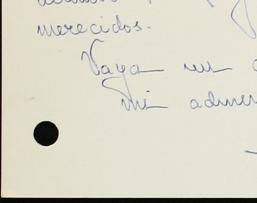 merecidos.
Vaya un
mi admir